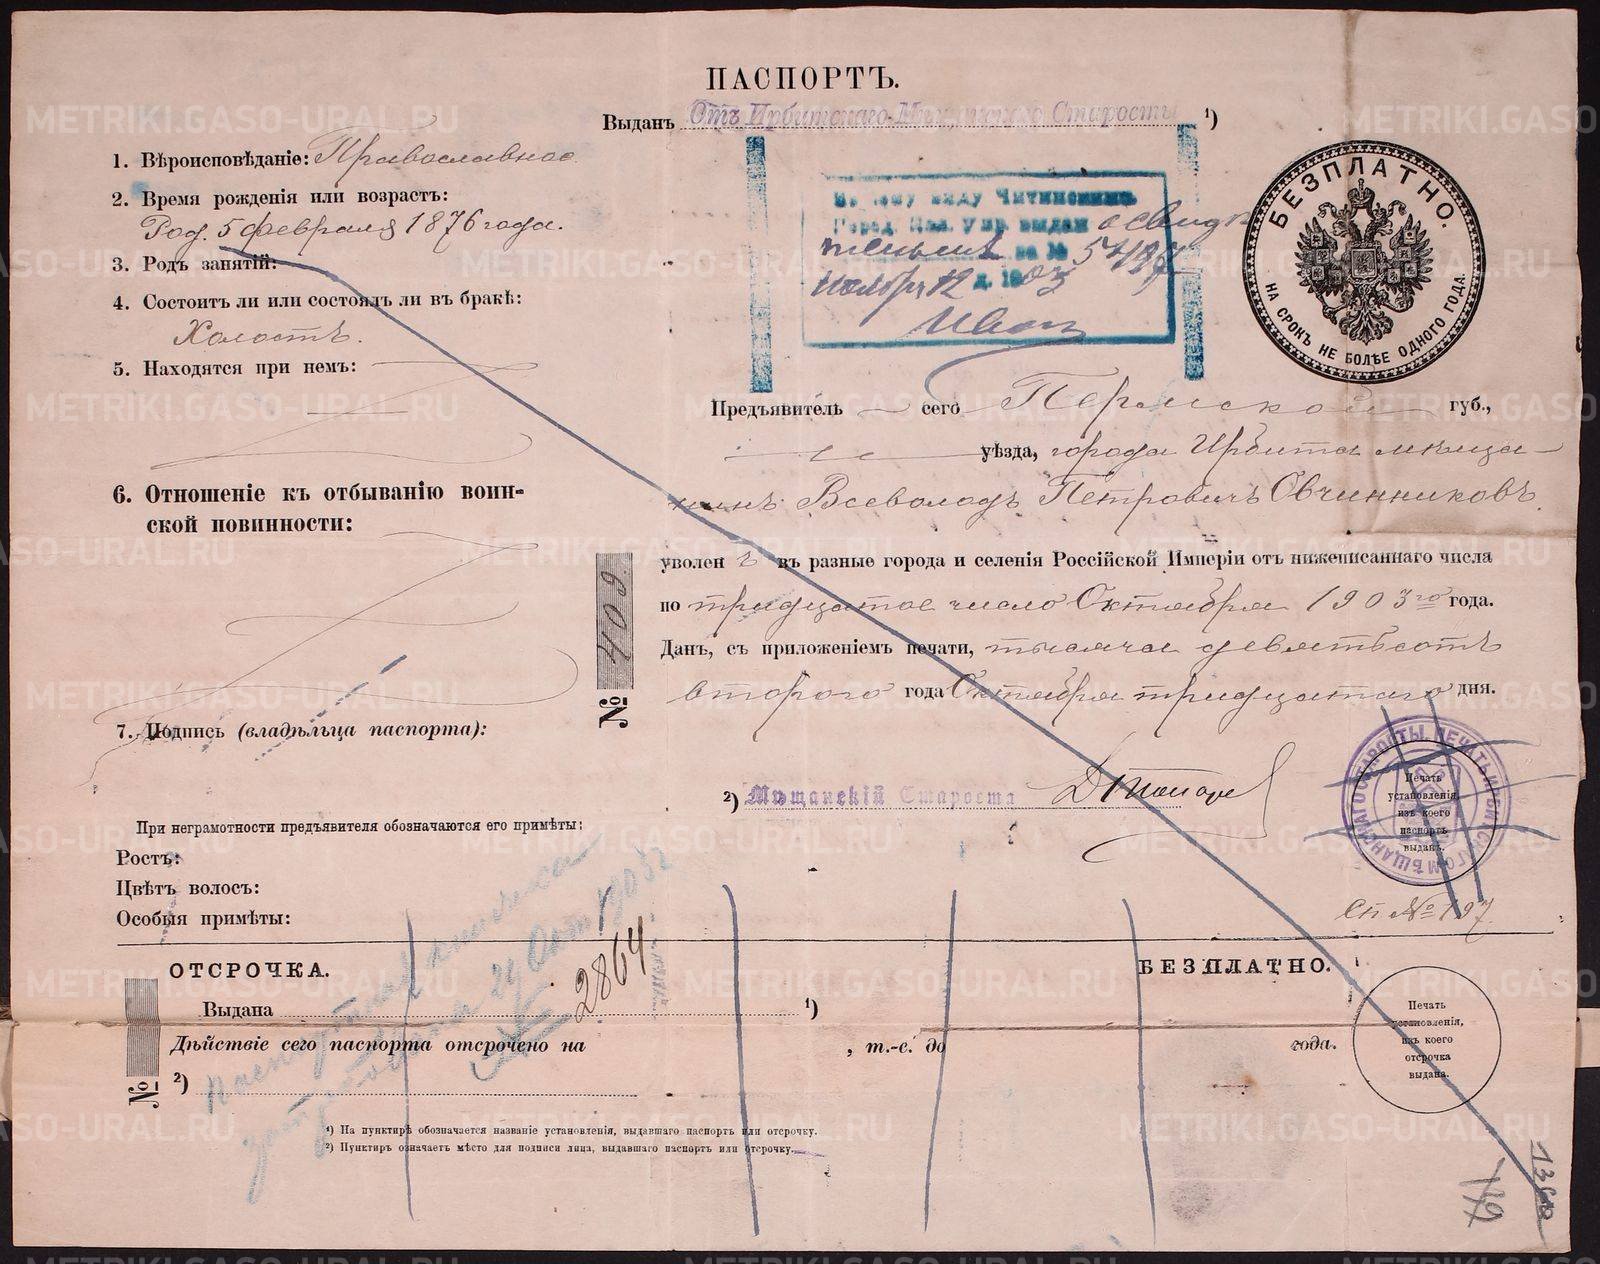 ПАСПОРТЪ.
Выданъ Отъ Ирбитскаго Мѣщанскаго Старосты ¹)
1. Вѣроисповѣданіе: Православное
2. Время рожденія или возрастъ:
Род. 5 февраля 1876 года.
3. Родъ занятій:
4. Состоитъ ли или состоялъ ли въ бракѣ:
Холостъ.
5. Находятся при немъ:
6. Отношеніе къ отбыванію воин-
ской повинности:
7. Подпись (владѣльца паспорта):
При неграмотности предъявителя обозначаются его примѣты:
Ростъ:
Цвѣтъ волосъ:
Особыя примѣты:
виду Читинскимъ
Город. Пол. Упр. выдан о свидѣ
за № 5487
Ноября 12 д. 1903
БЕЗПЛАТНО.
НА СРОКЪ НЕ БОЛѢЕ ОДНОГО ГОДА.
Предъявитель сего Пермской губ.,
уѣзда, города Ирбита мѣща-
нинъ Всеволодъ Петровичъ Овчинниковъ
уволенъ въ разные города и селенія Россійской Имперіи отъ нижеписаннаго числа
по тридцатое число Октября 1903го года.
Данъ, съ приложеніемъ печати, тысяча девятьсотъ
второго года Октября тридцатаго дня.
№ 409
²) Мѣщанскій Староста
ПЕЧАТЬ ИРБИТСКАГО МѢЩАНСКАГО СТАРОСТЫ
Печать
установленія,
изъ коего
паспортъ
выданъ.
Сп № 197
ОТСРОЧКА.
БЕЗПЛАТНО.
Выдана ¹)
Дѣйствіе сего паспорта отсрочено на , т.-е. до года.
№
²)
2864
Печать
установленія,
изъ коего
отсрочка
выдана.
¹) На пунктирѣ обозначается названіе установленія, выдавшаго паспортъ или отсрочку.
²) Пунктиръ означаетъ мѣсто для подписи лица, выдавшаго паспортъ или отсрочку.
METRIKI.GASO-URAL.RU